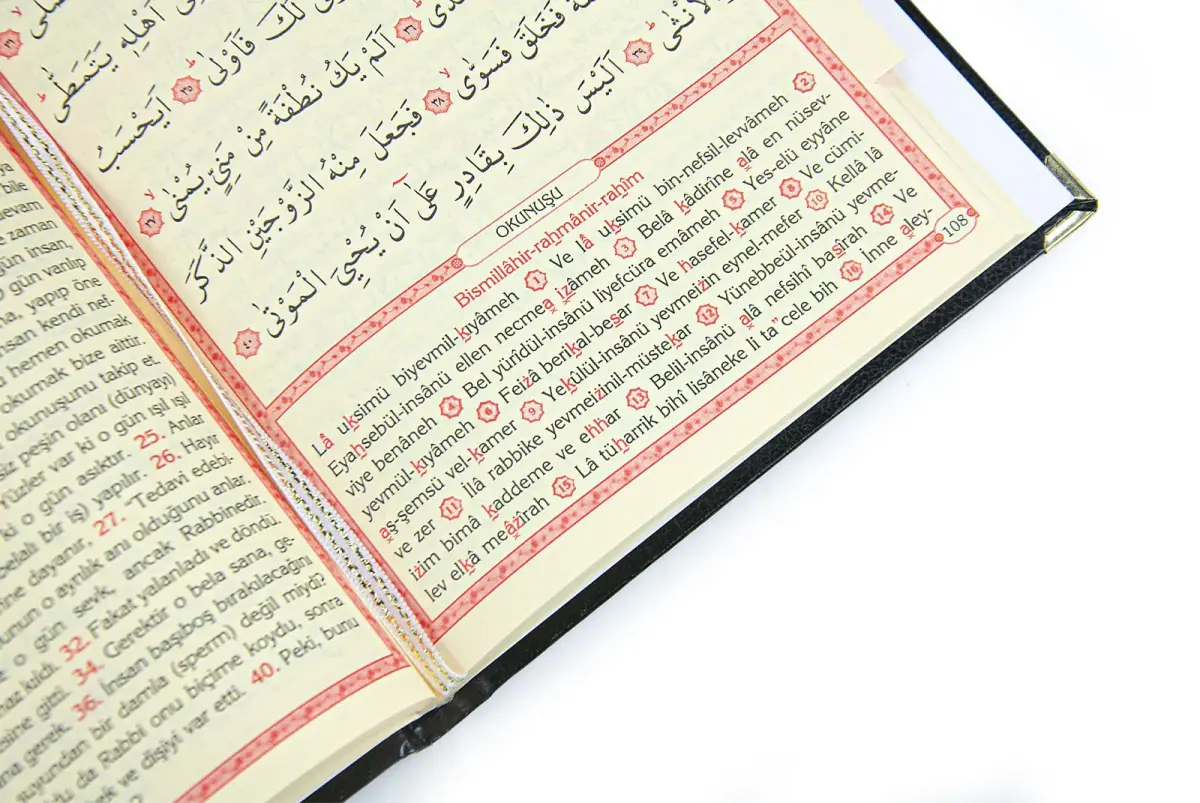 اَهْلِه۪ يَتَمَطّٰى
لَكَ فَاَوْلٰى ٣٥ اَيَحْسَبُ
٣٦ اَلَمْ يَكُ نُطْفَةً مِنْ مَنِيٍّ يُمْنٰى ٣٧
فَخَلَقَ فَسَوّٰى ٣٨ فَجَعَلَ مِنْهُ الزَّوْجَيْنِ الذَّكَرَ
٣٩ اَلَيْسَ ذٰلِكَ بِقَادِرٍ عَلٰٓى اَنْ يُحْيِيَ الْمَوْتٰى ٤٠
OKUNUŞU
Bismillâhir-rahmânir-rahîm
Lâ uksimü biyevmil-kıyâmeh 1 Ve lâ uksimü bin-nefsil-levvâmeh 2
Eyahsebül-insânü ellen necmea ızâmeh 3 Belâ kâdirîne alâ en nüsev-
viye benâneh 4 Bel yürîdül-insânü liyefcüra emâmeh 5 Yes-elü eyyâne
yevmül-kıyâmeh 6 Feizâ berikal-besar 7 Ve hasefel-kamer 8 Ve cümi-
aş-şemsü vel-kamer 9 Yekûlül-insânü yevmeizin eynel-mefer 10 Kellâ lâ
ve zer 11 İlâ rabbike yevmeizinil-müstekar 12 Yünebbeül-insânü yevme-
izim bimâ kaddeme ve ehhar 13 Belil-insânü alâ nefsihî basîrah 14 Ve
lev elkâ meâzîrah 15 Lâ tüharrik bihî lisâneke li ta"cele bih 16 İnne aley-
108
bile
devam
zaman
gün insan,
gün varılıp
yapıp öne
insan kendi nef-
hemen okumak
okumak bize aittir.
okunuşunu takip et.
peşin olanı (dünyayı)
Yüzler var ki o gün ışıl ışıl
ki o gün asıktır. 25. Anlar
belalı bir iş) yapılır. 26. Hayır
dayanır. 27. "Tedavi edebi-
o ayrılık anı olduğunu anlar.
o gün sevk, ancak Rabbinedir.
kıldı. 32. Fakat yalanladı ve döndü.
gitti. 34. Gerektir o bela sana, ge-
gerek. 36. İnsan başıboş bırakılacağını
suyundan bir damla (sperm) değil miydi?
da Rabbi onu biçime koydu, sonra
ve dişiyi var etti. 40. Peki, bunu